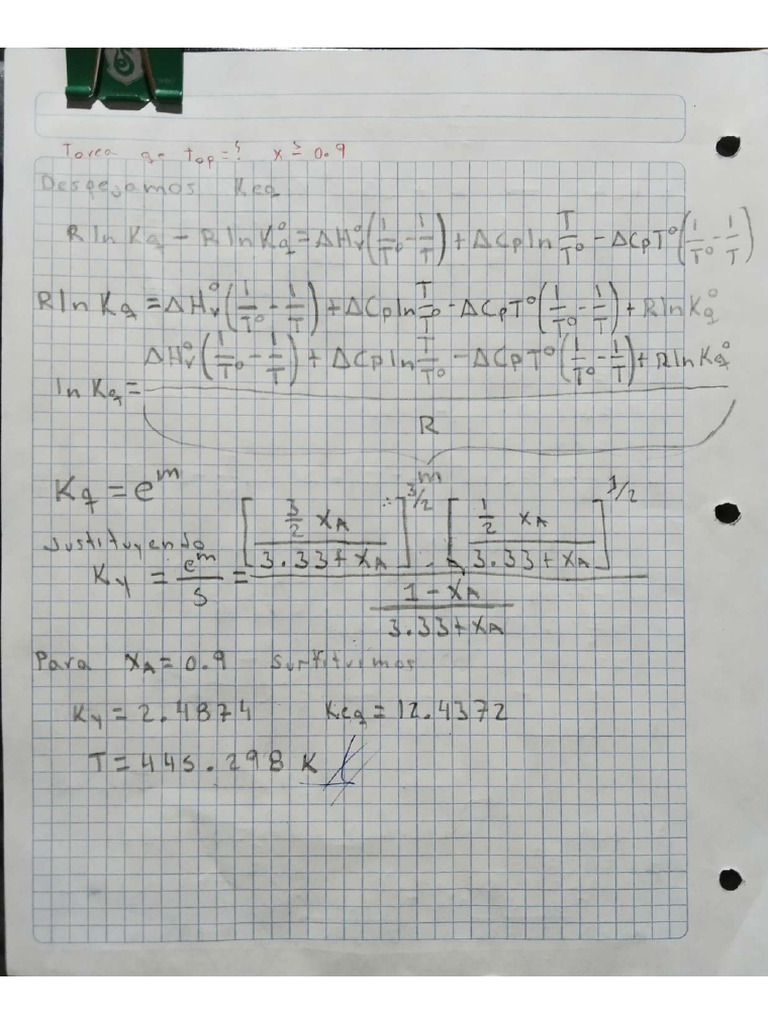 Tarea a top=? x = 0.9
Despejamos Keq
R ln Kq - R ln K°q = ΔH°v (1/T° - 1/T) + ΔCp ln T/T° - ΔCp T° (1/T° - 1/T)
R ln Kq = ΔH°v (1/T° - 1/T) + ΔCp ln T/T° - ΔCp T° (1/T° - 1/T) + R ln K°q
ln Kq = ΔH°v (1/T° - 1/T) + ΔCp ln T/T° - ΔCp T° (1/T° - 1/T) + R ln K°q / R
m
Kq = e^m
Sustituyendo
Ky = e^m/5 = [3/2 XA / 3.33+XA]^3/2 · [1/2 XA / 3.33+XA]^1/2 / (1-XA / 3.33+XA)
Para XA = 0.9 Sustituimos
Ky = 2.4874 Keq = 12.4372
T = 445.298 K